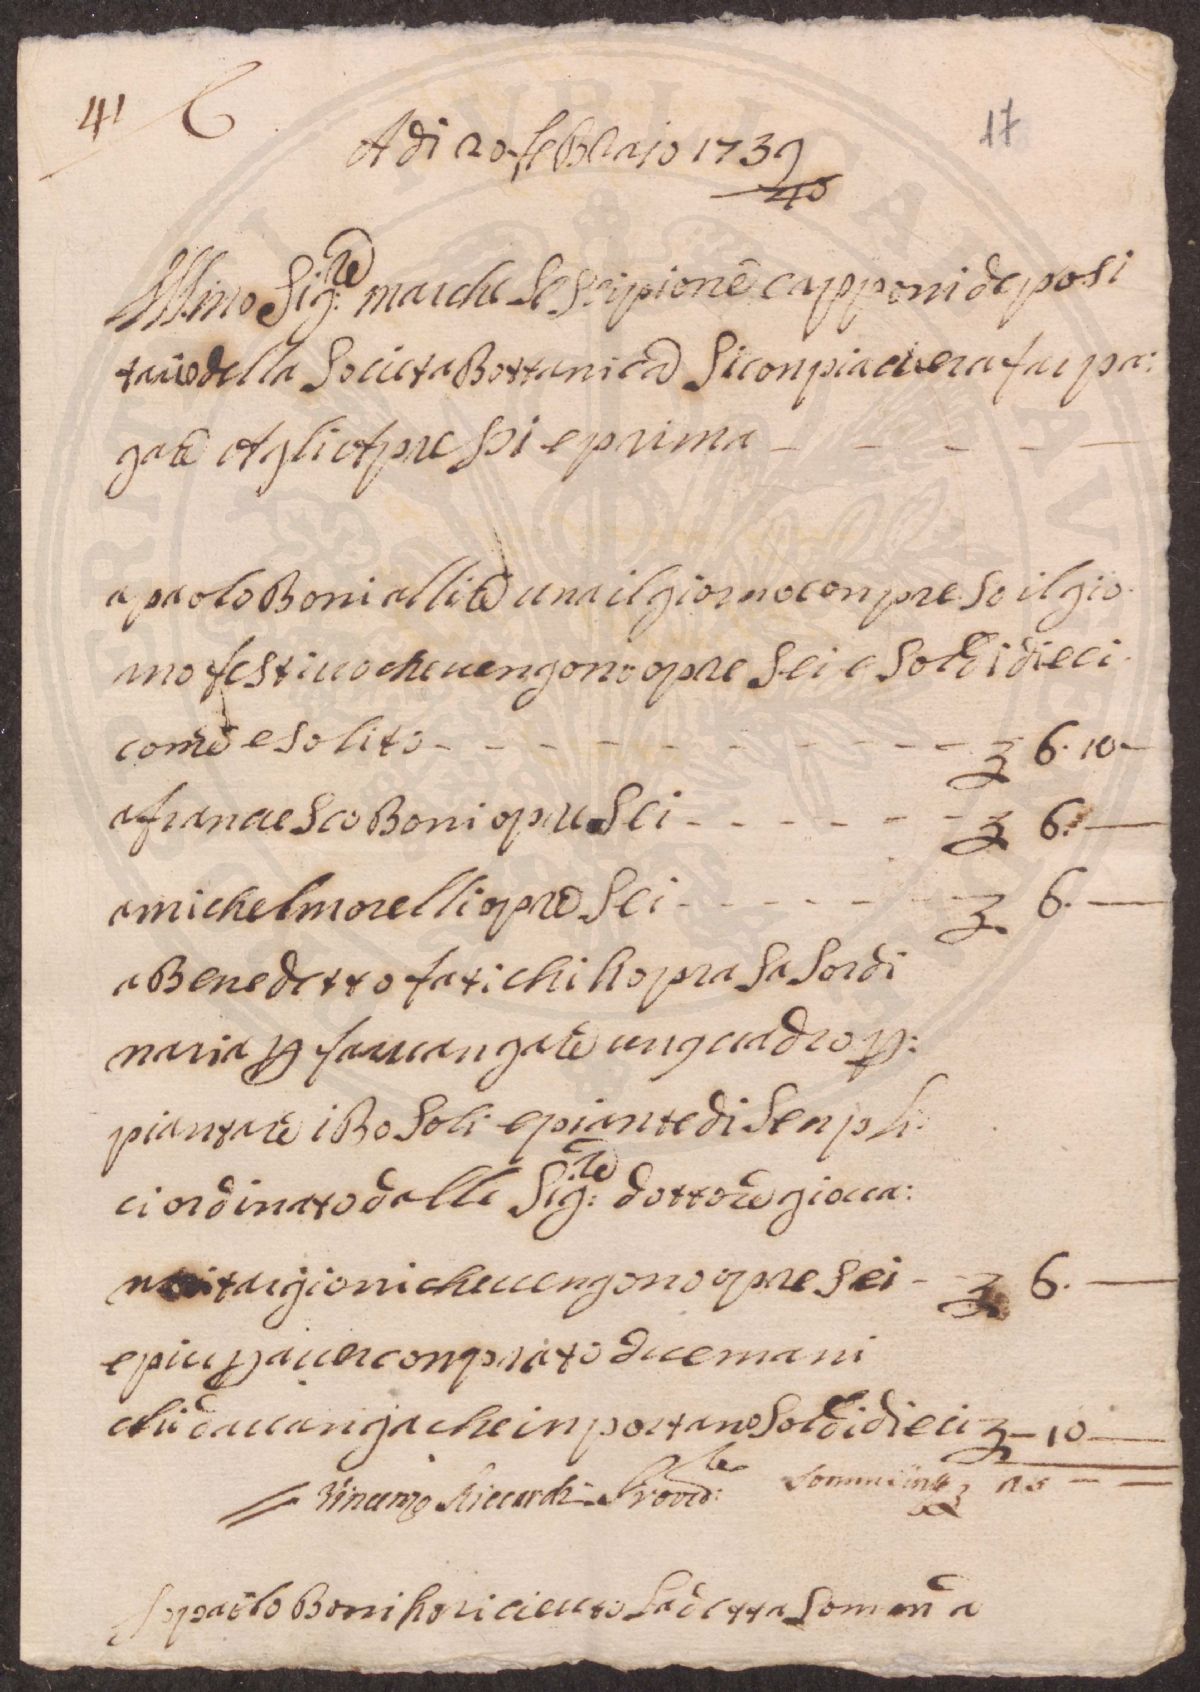 41
17
Adi 20 febbraio 1739
40
Ill:mo Sig:re marchese Scipione capponi deposi
tario della Societa Bottanica Si conpiacera far pa:
gare Agli Apressi e prima
a paolo Boni a llire una il giorno conpreso il gio
rno festiuo che uengono opre Sei e Soldi dieci
come e Solito 6. 10
a franceesco Boni opre Sei 6.
a michel morelli opre Sei 6.
a Benedetto fatichi
naria p far uangare un quadro p:
piantare i Bosoli e piante di Senpli
ci ordinato dalle Sig:re dottore gioua:
targioni che uengono opre Sei 6.
e piu p auer conprato due mani
chi da uanga che inportano Soldi dieci 10
Vincenzo Riccardi Proved:re Somma in tt 25
Io paolo Boni ho riceuuto La detta Somma